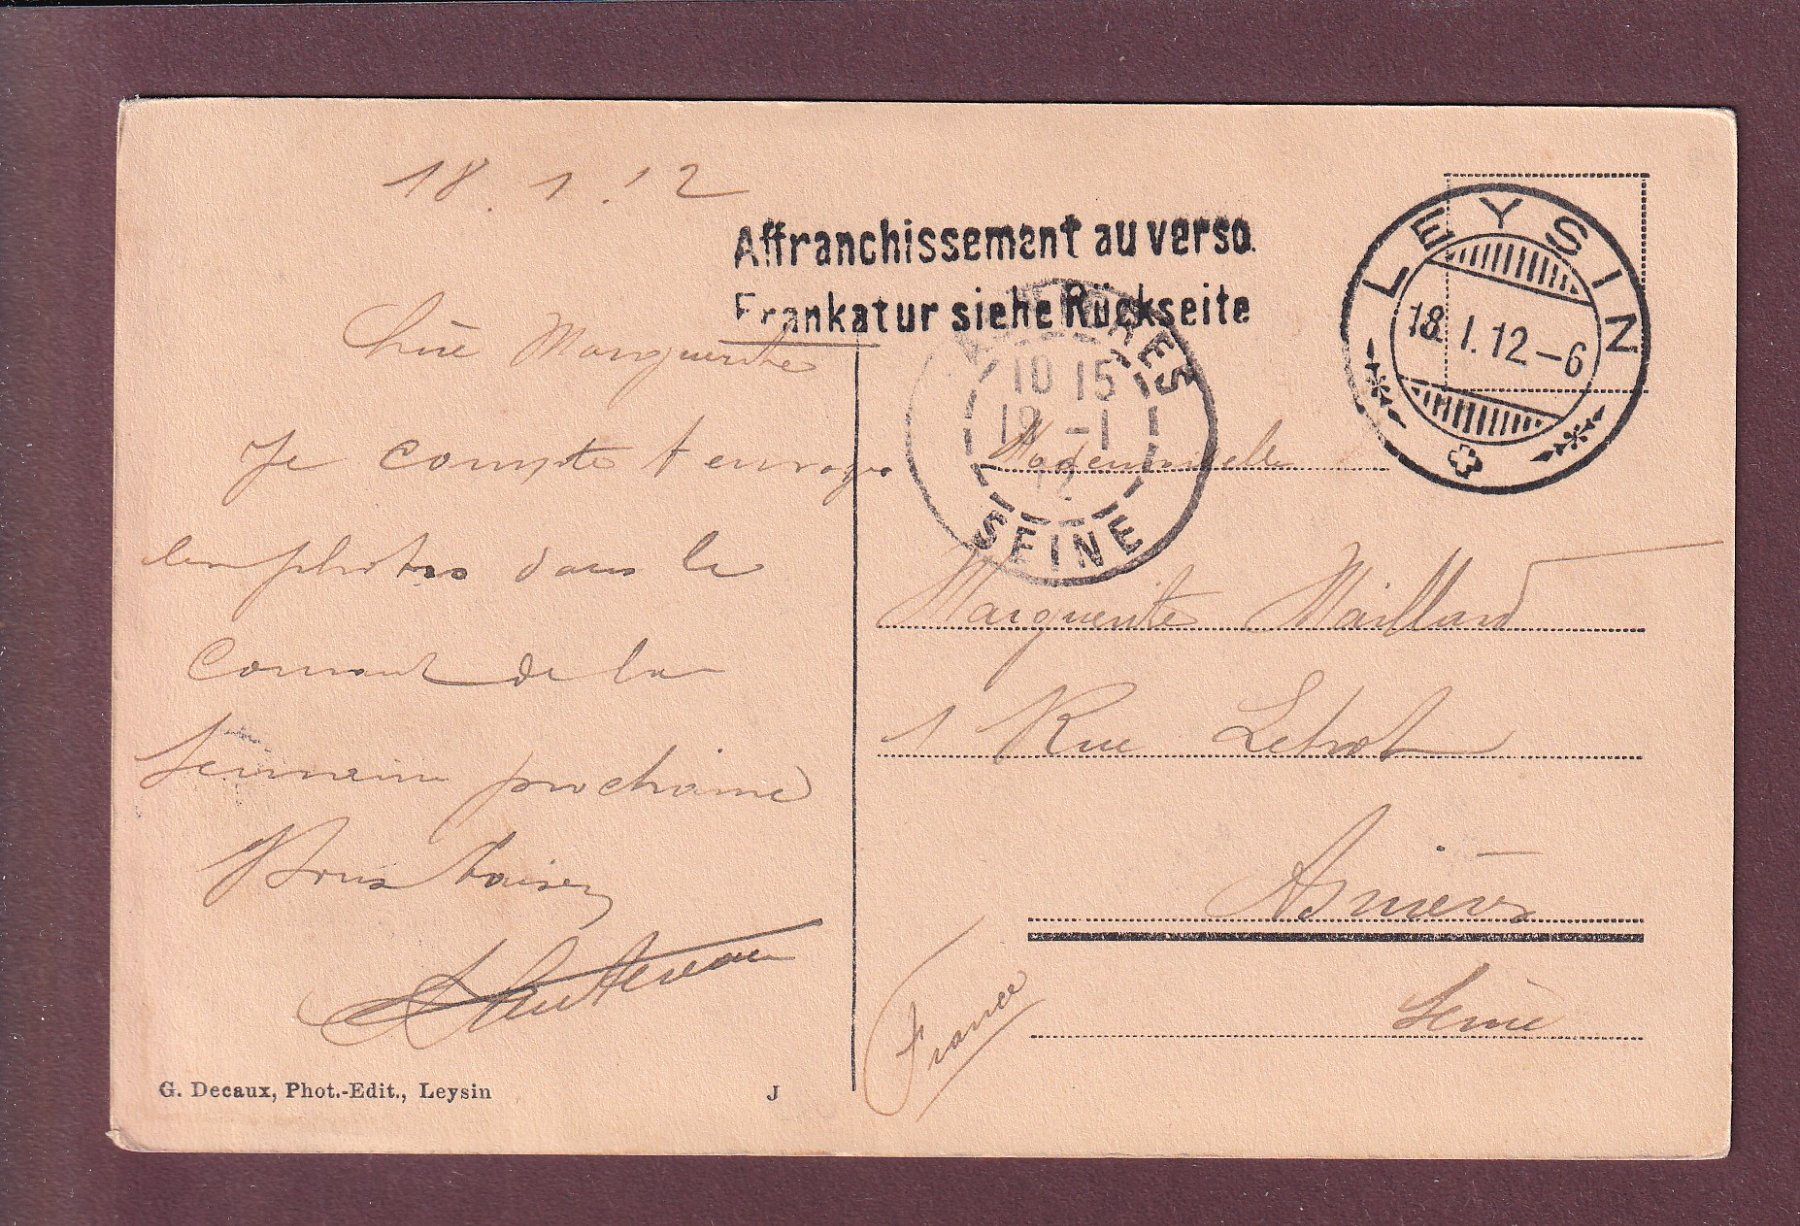 18.1.12
Affranchissement au verso
Frankatur siehe Rückseite
LEYSIN
18.I.12-6
ASNIERES
10 15
-1
12
SEINE
Chère Marguerite
Je compte t'envoyer
les photos dans le
courant de la
semaine prochaine
Bons baisers
Mademoiselle
Marguerite Maillard
1 Rue
Asnières
Seine
France
G. Decaux, Phot.-Edit., Leysin
J